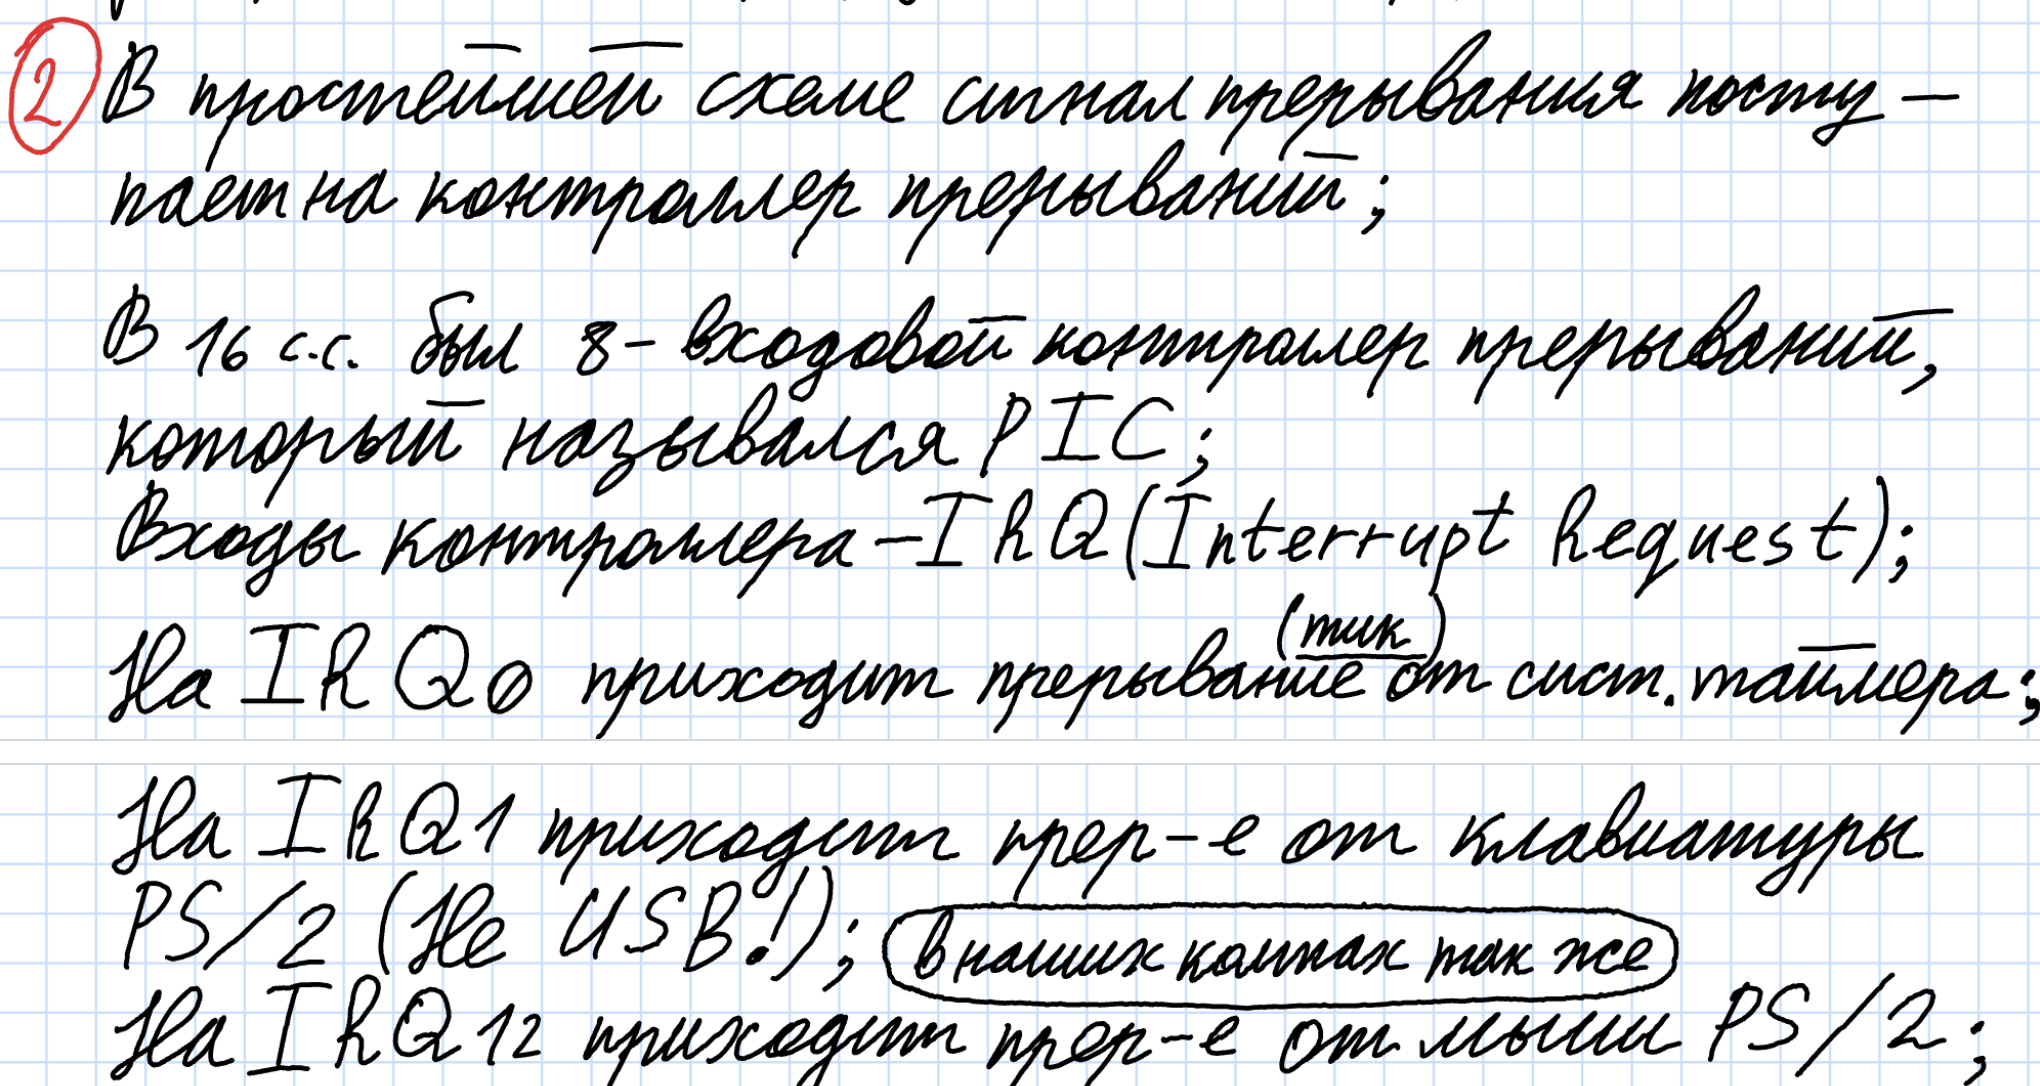 2 В простейшей схеме сигнал прерывания посту-
пает на контроллер прерываний;
В 16 с.с. был 8-входовой контроллер прерываний,
который назывался PIC;
Входы контроллера – IRQ (Interrupt Request);
(тик)
На IRQ0 приходит прерывание от сист. таймера;
На IRQ1 приходит прер-е от клавиатуры
PS/2 (Не USB!); в наших компах так же
На IRQ12 приходит прер-е от мыши PS/2;